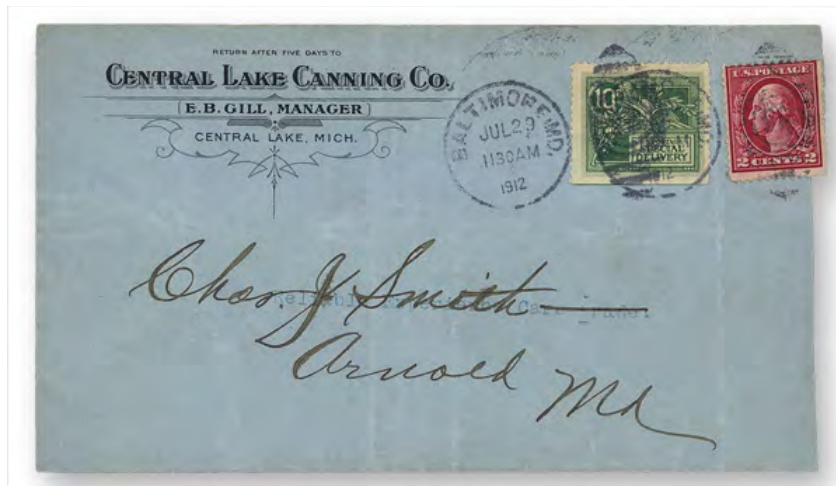 RETURN AFTER FIVE DAYS TO
CENTRAL LAKE CANNING CO.
E.B. GILL, MANAGER
CENTRAL LAKE, MICH.
BALTIMORE, MD.
JUL 29
1130AM
1912
10
SPECIAL
DELIVERY
MD.
1912
U.S. POSTAGE
2 CENTS 2
Chas. J. Smith
Arnold
Md